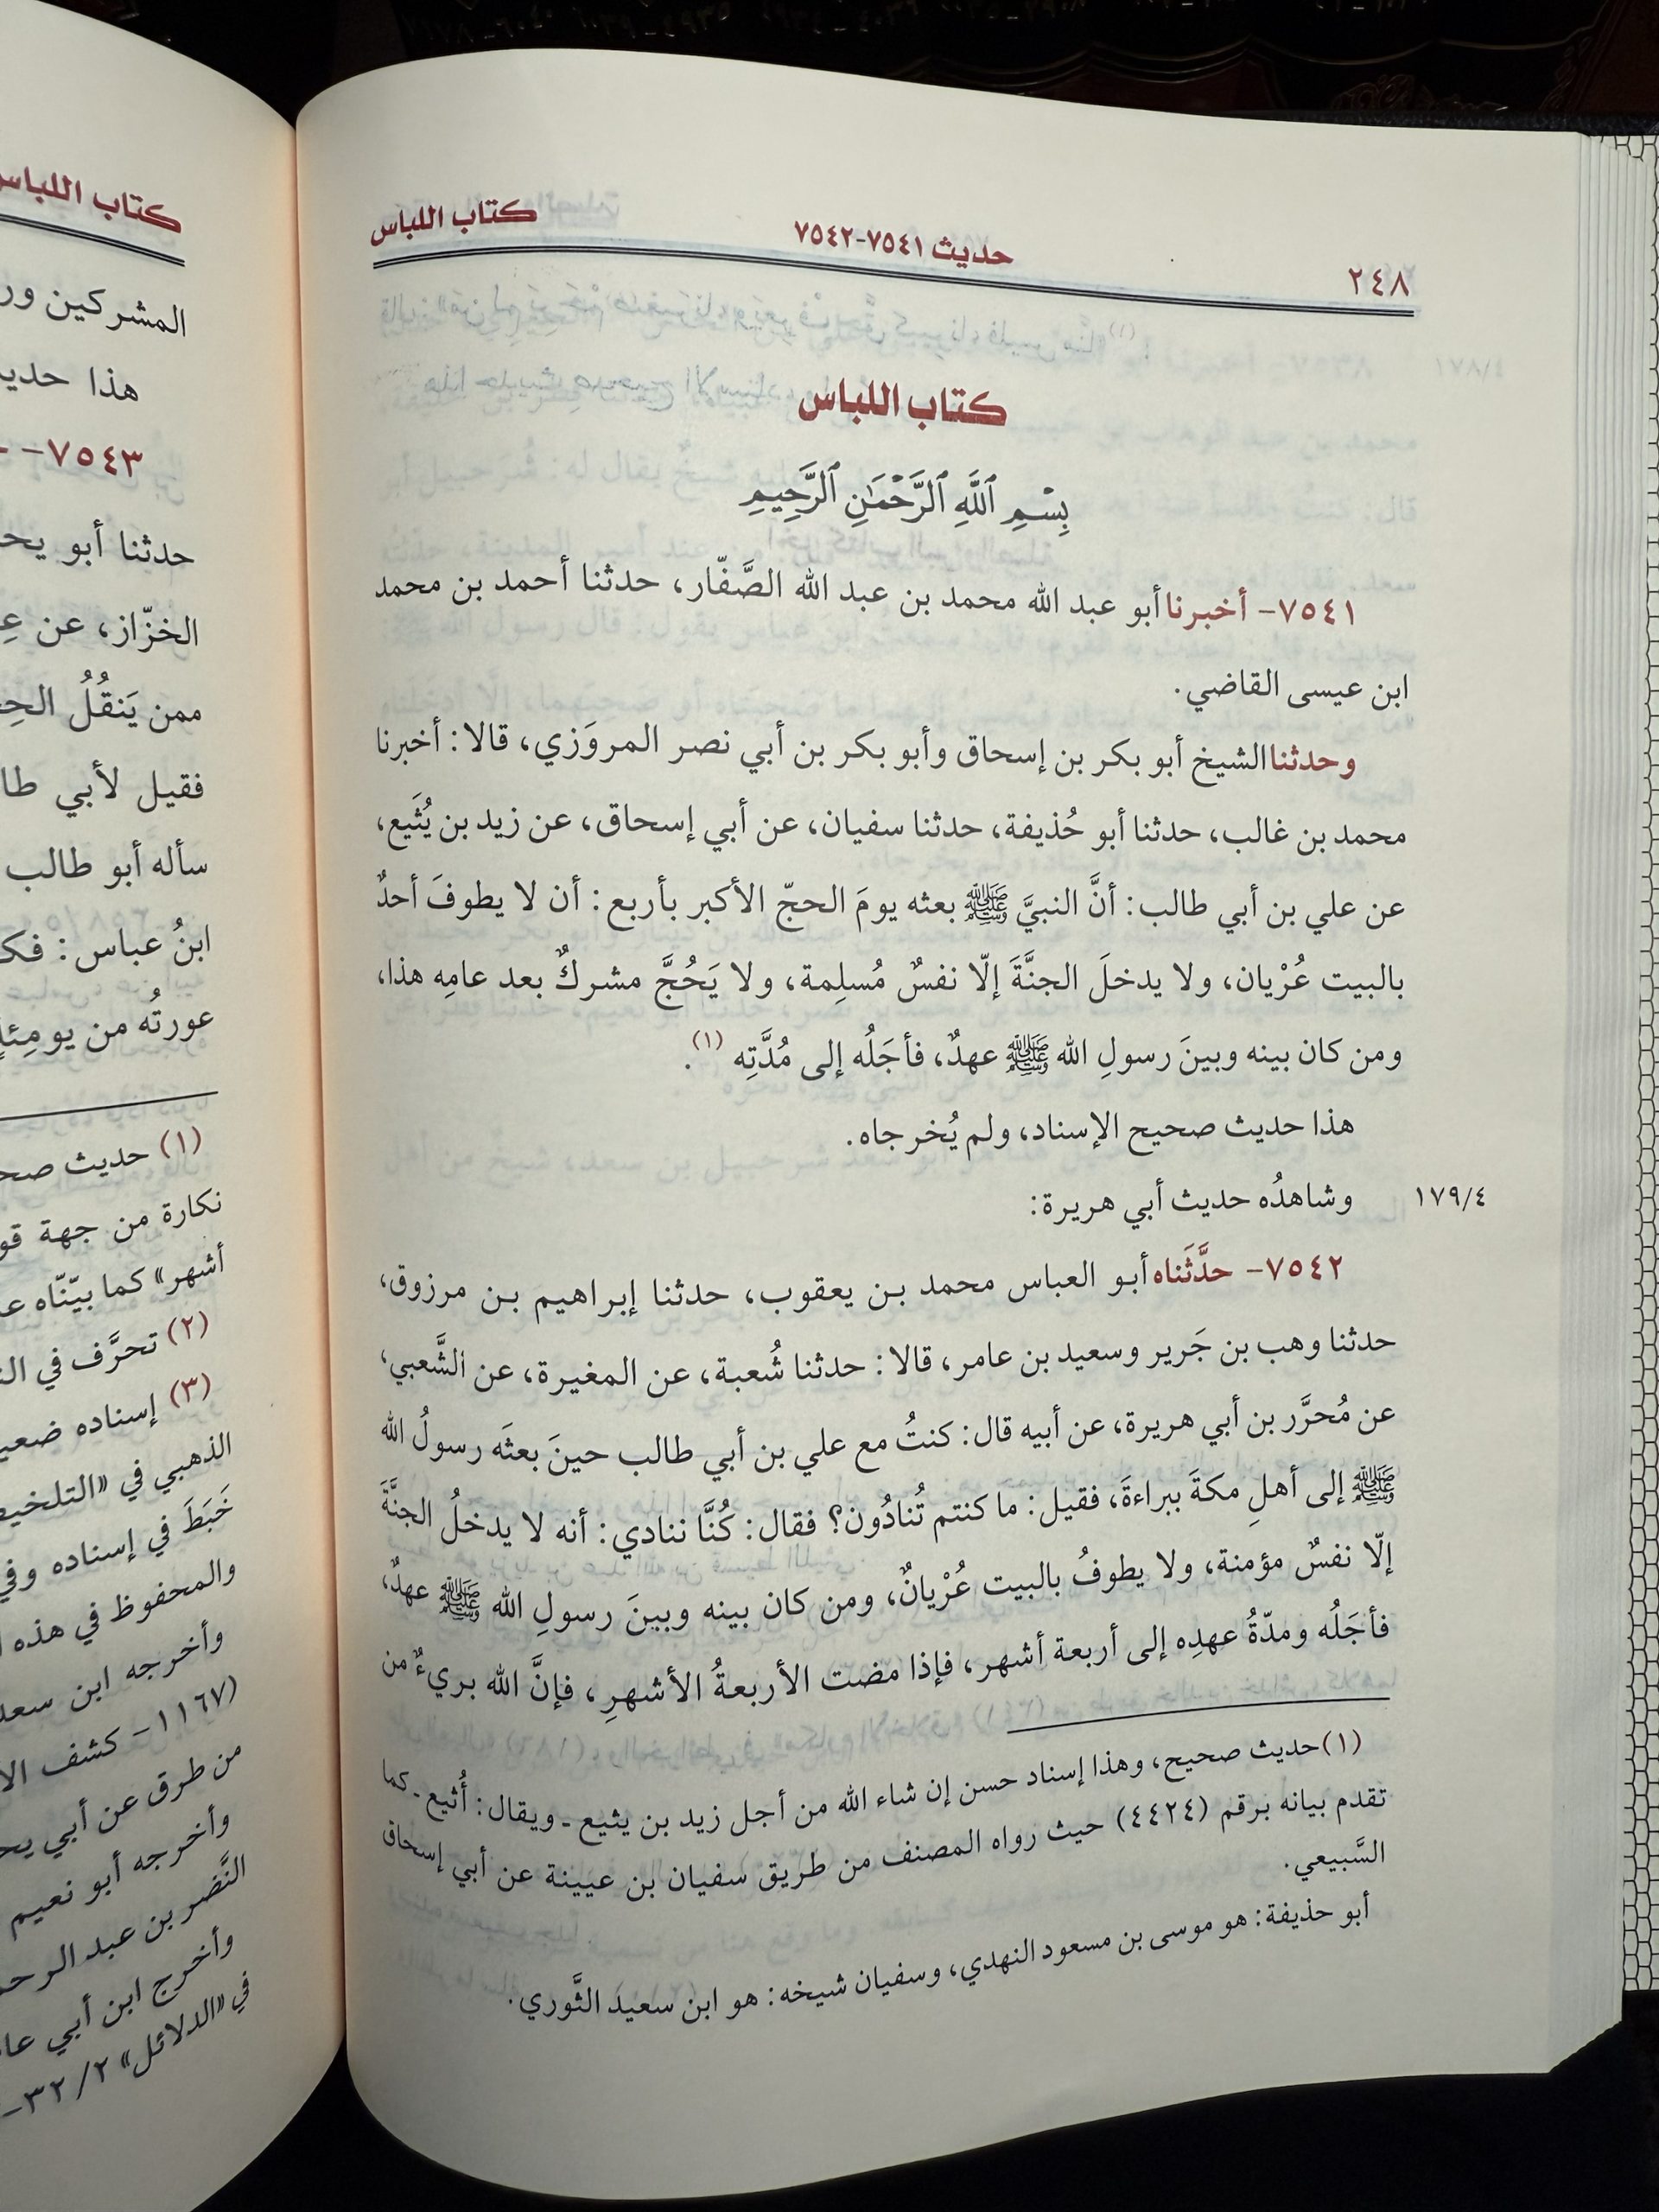 ٢٤٨
حديث ٧٥٤١-٧٥٤٢
كتاب اللباس
كتاب اللباس
بِسْمِ ٱللَّهِ ٱلرَّحْمَٰنِ ٱلرَّحِيمِ
٧٥٤١- أخبرنا أبو عبد الله محمد بن عبد الله الصَّفّار، حدثنا أحمد بن محمد
ابن عيسى القاضي.
وحدثنا الشيخ أبو بكر بن إسحاق وأبو بكر بن أبي نصر المروَزي، قالا: أخبرنا
محمد بن غالب، حدثنا أبو حُذيفة، حدثنا سفيان، عن أبي إسحاق، عن زيد بن يُثَيع،
عن علي بن أبي طالب: أنَّ النبيَّ ﷺ بعثه يومَ الحجّ الأكبر بأربع: أن لا يطوفَ أحدٌ
بالبيت عُرْيان، ولا يدخلَ الجنَّةَ إلّا نفسٌ مُسلِمة، ولا يَحُجَّ مشركٌ بعد عامِه هذا،
ومن كان بينه وبينَ رسولِ الله ﷺ عهدٌ، فأجَلُه إلى مُدَّتِه (١).
هذا حديث صحيح الإسناد، ولم يُخرجاه.
وشاهدُه حديث أبي هريرة:
١٧٩/٤
٧٥٤٢- حدَّثَناه أبو العباس محمد بن يعقوب، حدثنا إبراهيم بن مرزوق،
حدثنا وهب بن جَرير وسعيد بن عامر، قالا: حدثنا شُعبة، عن المغيرة، عن الشَّعبي،
عن مُحرَّر بن أبي هريرة، عن أبيه قال: كنتُ مع علي بن أبي طالب حينَ بعثَه رسولُ الله
ﷺ إلى أهلِ مكةَ ببراءةَ، فقيل: ما كنتم تُنادُون؟ فقال: كُنَّا ننادي: أنه لا يدخلُ الجنَّةَ
إلّا نفسٌ مؤمنة، ولا يطوفُ بالبيت عُرْيانٌ، ومن كان بينه وبينَ رسولِ الله ﷺ عهدٌ،
فأجَلُه ومدّةُ عهدِه إلى أربعة أشهر، فإذا مضت الأربعةُ الأشهرِ، فإنَّ الله بريءٌ من
(١) حديث صحيح، وهذا إسناد حسن إن شاء الله من أجل زيد بن يثيع - ويقال: أُثيع - كما
تقدم بيانه برقم (٤٤٢٤) حيث رواه المصنف من طريق سفيان بن عيينة عن أبي إسحاق
السَّبيعي.
أبو حذيفة: هو موسى بن مسعود النهدي، وسفيان شيخه: هو ابن سعيد الثَّوري.
كتاب اللباس
المشركين
هذا
٧٥٤٣-
حدثنا أبو
الخزّاز، عن
ممن يَنقُلُ
فقيل لأبي
سأله أبو طالب
ابنُ عباس:
عورتُه من
(١) حديث
نكارة من جهة
أشهر» كما بيّنّاه
(٢) تحرَّف في
(٣) إسناده
الذهبي في
خَبَطَ في إسناده
والمحفوظ في هذه
وأخرجه ابن
(١١٦٧- كشف
من طرق عن أبي
وأخرجه أبو نعيم
النَّضر بن عبد
وأخرج ابن أبي
في «الدلائل» ٣٢/٢-